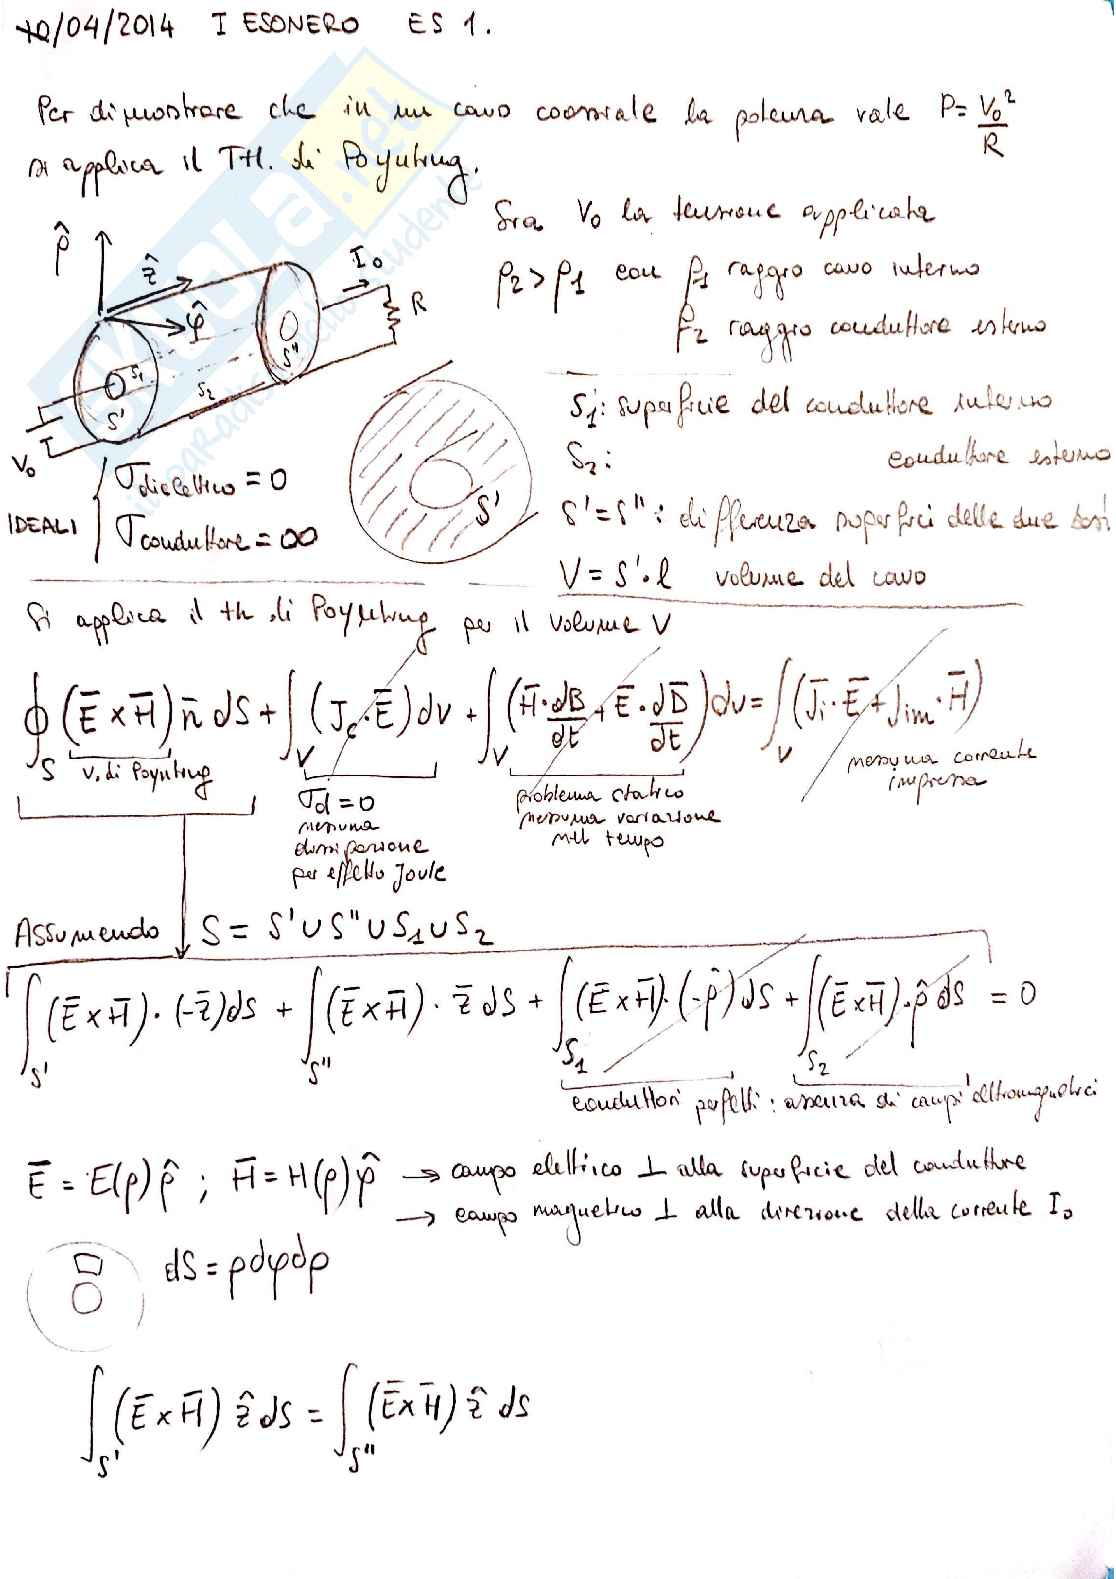 10/04/2014 I ESONERO ES 1.
Per dimostrare che in un cavo coassiale la potenza vale P = V₀²/R
si applica il TH. di Poynting.
Sia V₀ la tensione applicata
ρ₂ > ρ₁ con ρ₁ raggio cavo interno
ρ₂ raggio conduttore esterno
ρ̂
ẑ
φ̂
I₀
R
S₁
S₂
S'
S"
V₀
S₁: superficie del conduttore interno
S₂: conduttore esterno
S' = S" : differenza superfici delle due basi
V = S'·l volume del cavo
IDEALI
σdielettrico = 0
σconduttore = ∞
S'
Si applica il th di Poynting per il volume V
∮_S (Ē × H̄) n̄ dS + ∫_V (J̄c · Ē) dv + ∫_V (H̄ · dB̄/dt + Ē · dD̄/dt) dv = ∫_V (J̄i · Ē + J̄im · H̄)
v. di Poynting
σd = 0
nessuna
dissipazione
per effetto Joule
problema statico
nessuna variazione
nel tempo
nessuna corrente
impressa
Assumendo S = S' ∪ S" ∪ S₁ ∪ S₂
∫_S' (Ē × H̄) · (-z̄) dS + ∫_S" (Ē × H̄) · z̄ dS + ∫_S₁ (Ē × H̄) · (-ρ̂) dS + ∫_S₂ (Ē × H̄) · ρ̂ dS = 0
conduttori perfetti : assenza di campi elettromagnetici
Ē = E(ρ) ρ̂ ; H̄ = H(ρ) φ̂ → campo elettrico ⊥ alla superficie del conduttore
→ campo magnetico ⊥ alla direzione della corrente I₀
dS = ρ dφ dρ
∫_S' (Ē × H̄) ẑ dS = ∫_S" (Ē × H̄) ẑ dS